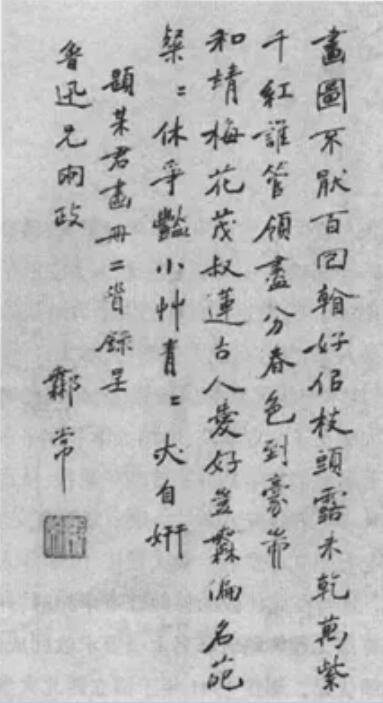 畫圖不厭百回看好佀枝頭露未乾萬紫
千紅誰管領盡分春色到豪耑
和靖梅花茂叔蓮古人愛好豈無徧名
粲〻休爭豔小艸青〻亦自妍
題某君畫冊二首錄呈
魯迅兄政
常